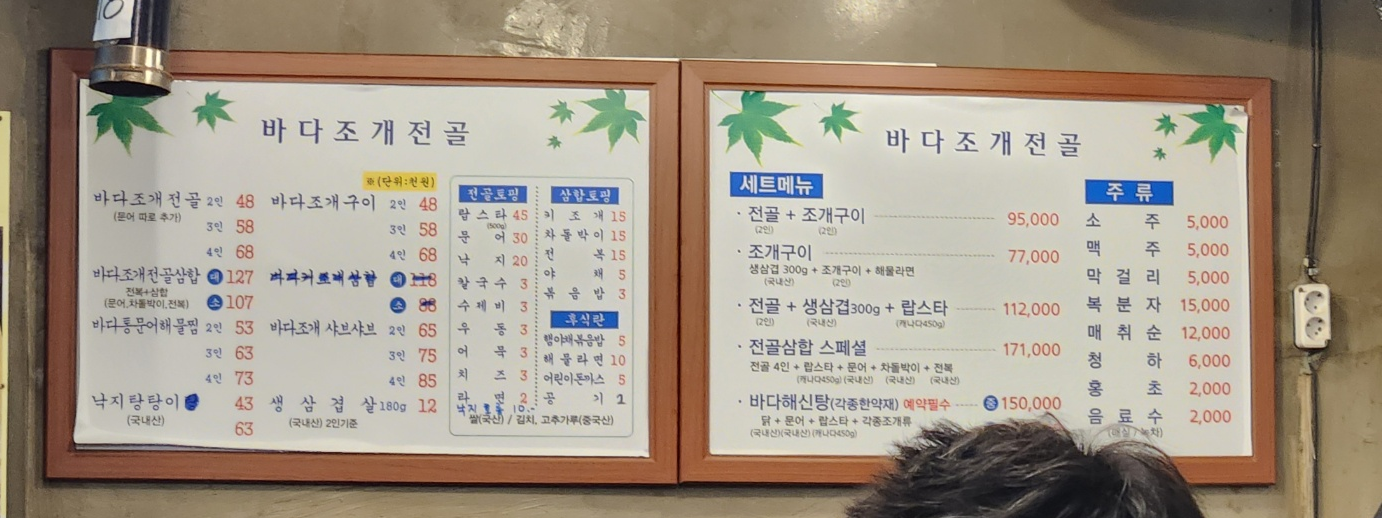 바다조개전골
※(단위:천원)
바다조개전골 2인 48
(문어 따로 추가)
3인 58
4인 68
바다조개전골삼합 대 127
전복+삼합
(문어,차돌박이,전복)
소 107
바다통문어해물찜 2인 53
3인 63
4인 73
낙지탕탕이 43
(국내산)
63
바다조개구이 2인 48
3인 58
4인 68
대
소
바다조개 샤브샤브 2인 65
3인 75
4인 85
생삼겹살 180g 12
(국내산) 2인기준
전골토핑
랍스타 45
(500g)
문어 30
낙지 20
칼국수 3
수제비 3
우동 3
어묵 3
치즈 3
라면 2
낙지 10.-
삼합토핑
키조개 15
차돌박이 15
전복 15
야채 5
볶음밥 3
후식란
햄야채볶음밥 5
해물라면 10
어린이돈까스 5
공기 1
쌀(국산) / 김치, 고추가루(중국산)
바다조개전골
세트메뉴
· 전골 + 조개구이 95,000
(2인) (2인)
· 조개구이 77,000
생삼겹 300g + 조개구이 + 해물라면
(국내산) (2인)
· 전골 + 생삼겹300g + 랍스타 112,000
(2인) (국내산) (캐나다450g)
· 전골삼합 스페셜 171,000
전골 4인 + 랍스타 + 문어 + 차돌박이 + 전복
(캐나다450g) (국내산) (국내산) (국내산)
· 바다해신탕(각종한약재) 예약필수 150,000
닭 + 문어 + 랍스타 + 각종조개류
(국내산)(국내산)(캐나다450g)
주류
소주 5,000
맥주 5,000
막걸리 5,000
복분자 15,000
매취순 12,000
청하 6,000
홍초 2,000
음료수 2,000
(매실 / 녹차)